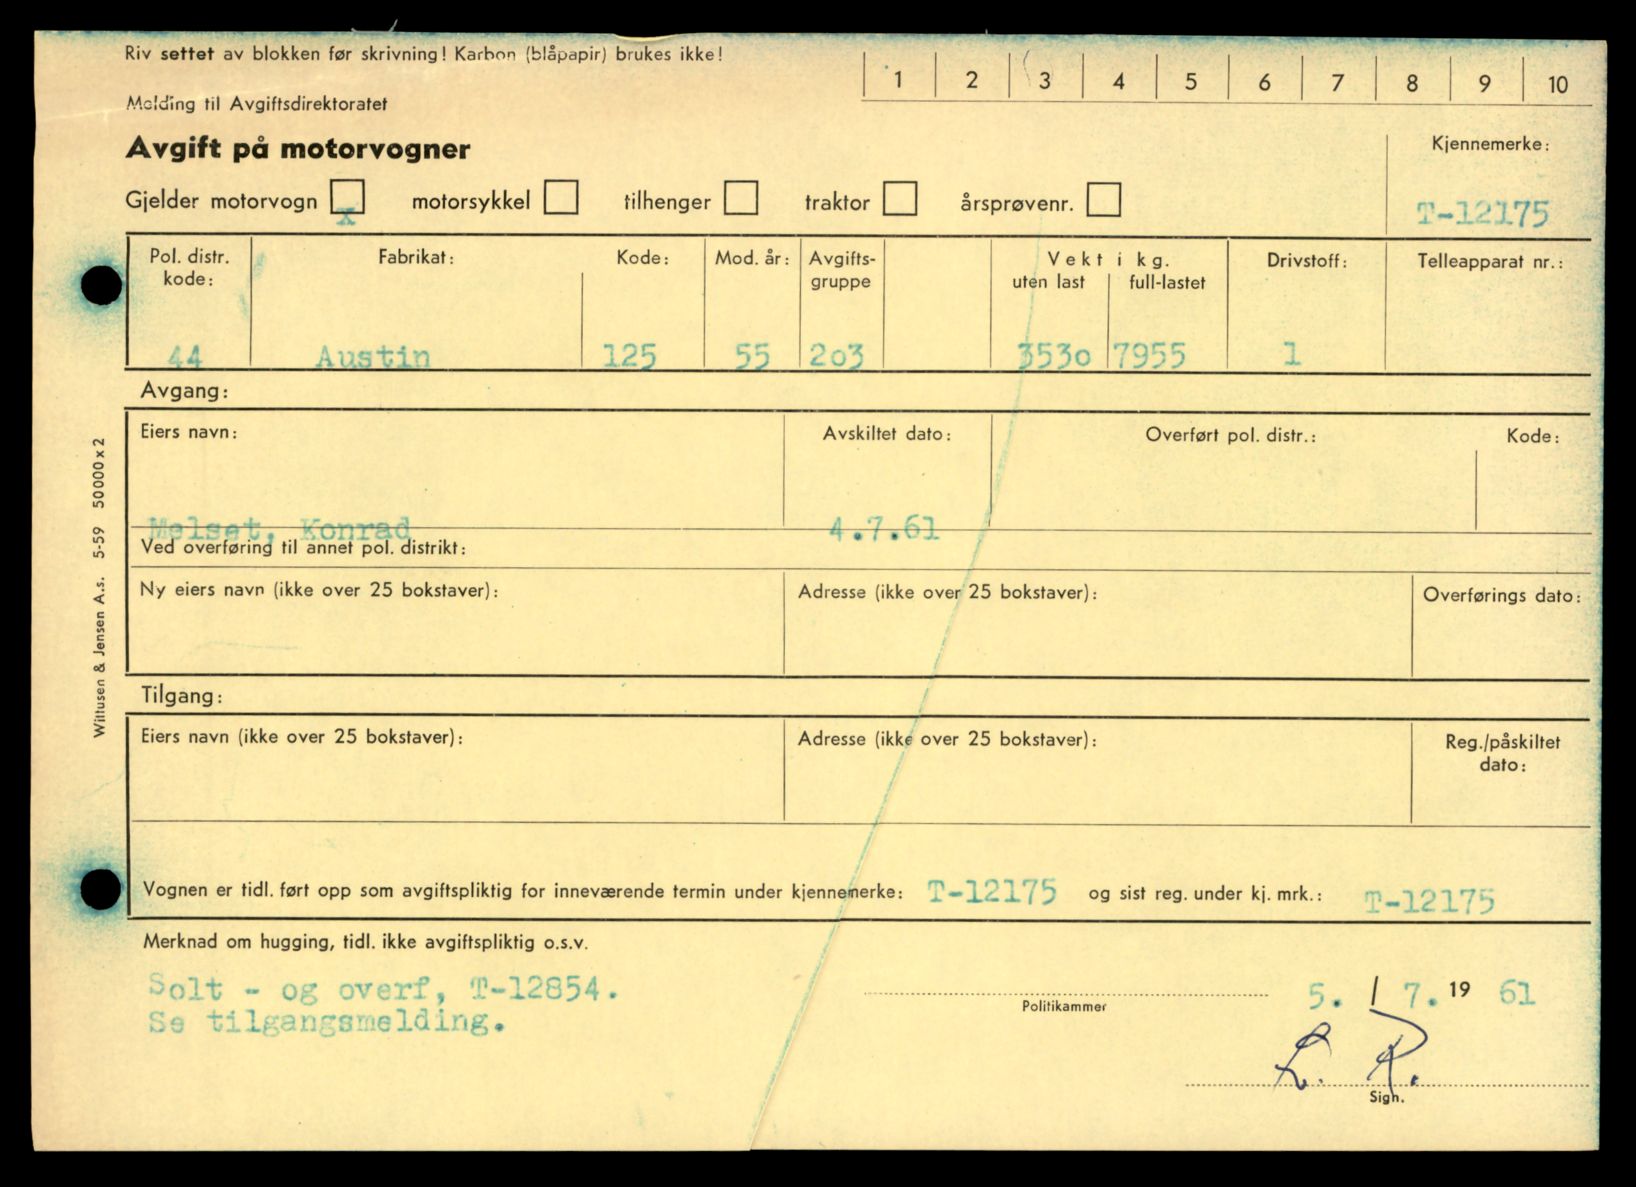 Riv settet av blokken før skrivning! Karbon (blåpapir) brukes ikke!
1 2 3 4 5 6 7 8 9 10
Melding til Avgiftsdirektoratet
Avgift på motorvogner
Kjennemerke:
Gjelder motorvogn x motorsykkel tilhenger traktor årsprøvenr.
T-12175
Pol. distr. kode: Fabrikat: Kode: Mod. år: Avgifts-gruppe Vekt i kg. uten last full-lastet Drivstoff: Telleapparat nr.:
44 Austin 125 55 2o3 353o 7955 1
Avgang:
Eiers navn: Avskiltet dato: Overført pol. distr.: Kode:
Melset, Konrad 4.7.61
Ved overføring til annet pol. distrikt:
Ny eiers navn (ikke over 25 bokstaver): Adresse (ikke over 25 bokstaver): Overførings dato:
Tilgang:
Eiers navn (ikke over 25 bokstaver): Adresse (ikke over 25 bokstaver): Reg./påskiltet dato:
Vognen er tidl. ført opp som avgiftspliktig for inneværende termin under kjennemerke: T-12175 og sist reg. under kj. mrk.: T-12175
Merknad om hugging, tidl. ikke avgiftspliktig o.s.v.
Solt - og overf, T-12854.
Se tilgangsmelding.
Politikammer
5. / 7. 19 61
L. R.
Sign.
Wittusen & Jensen A.s. 5-59 50000 x 2